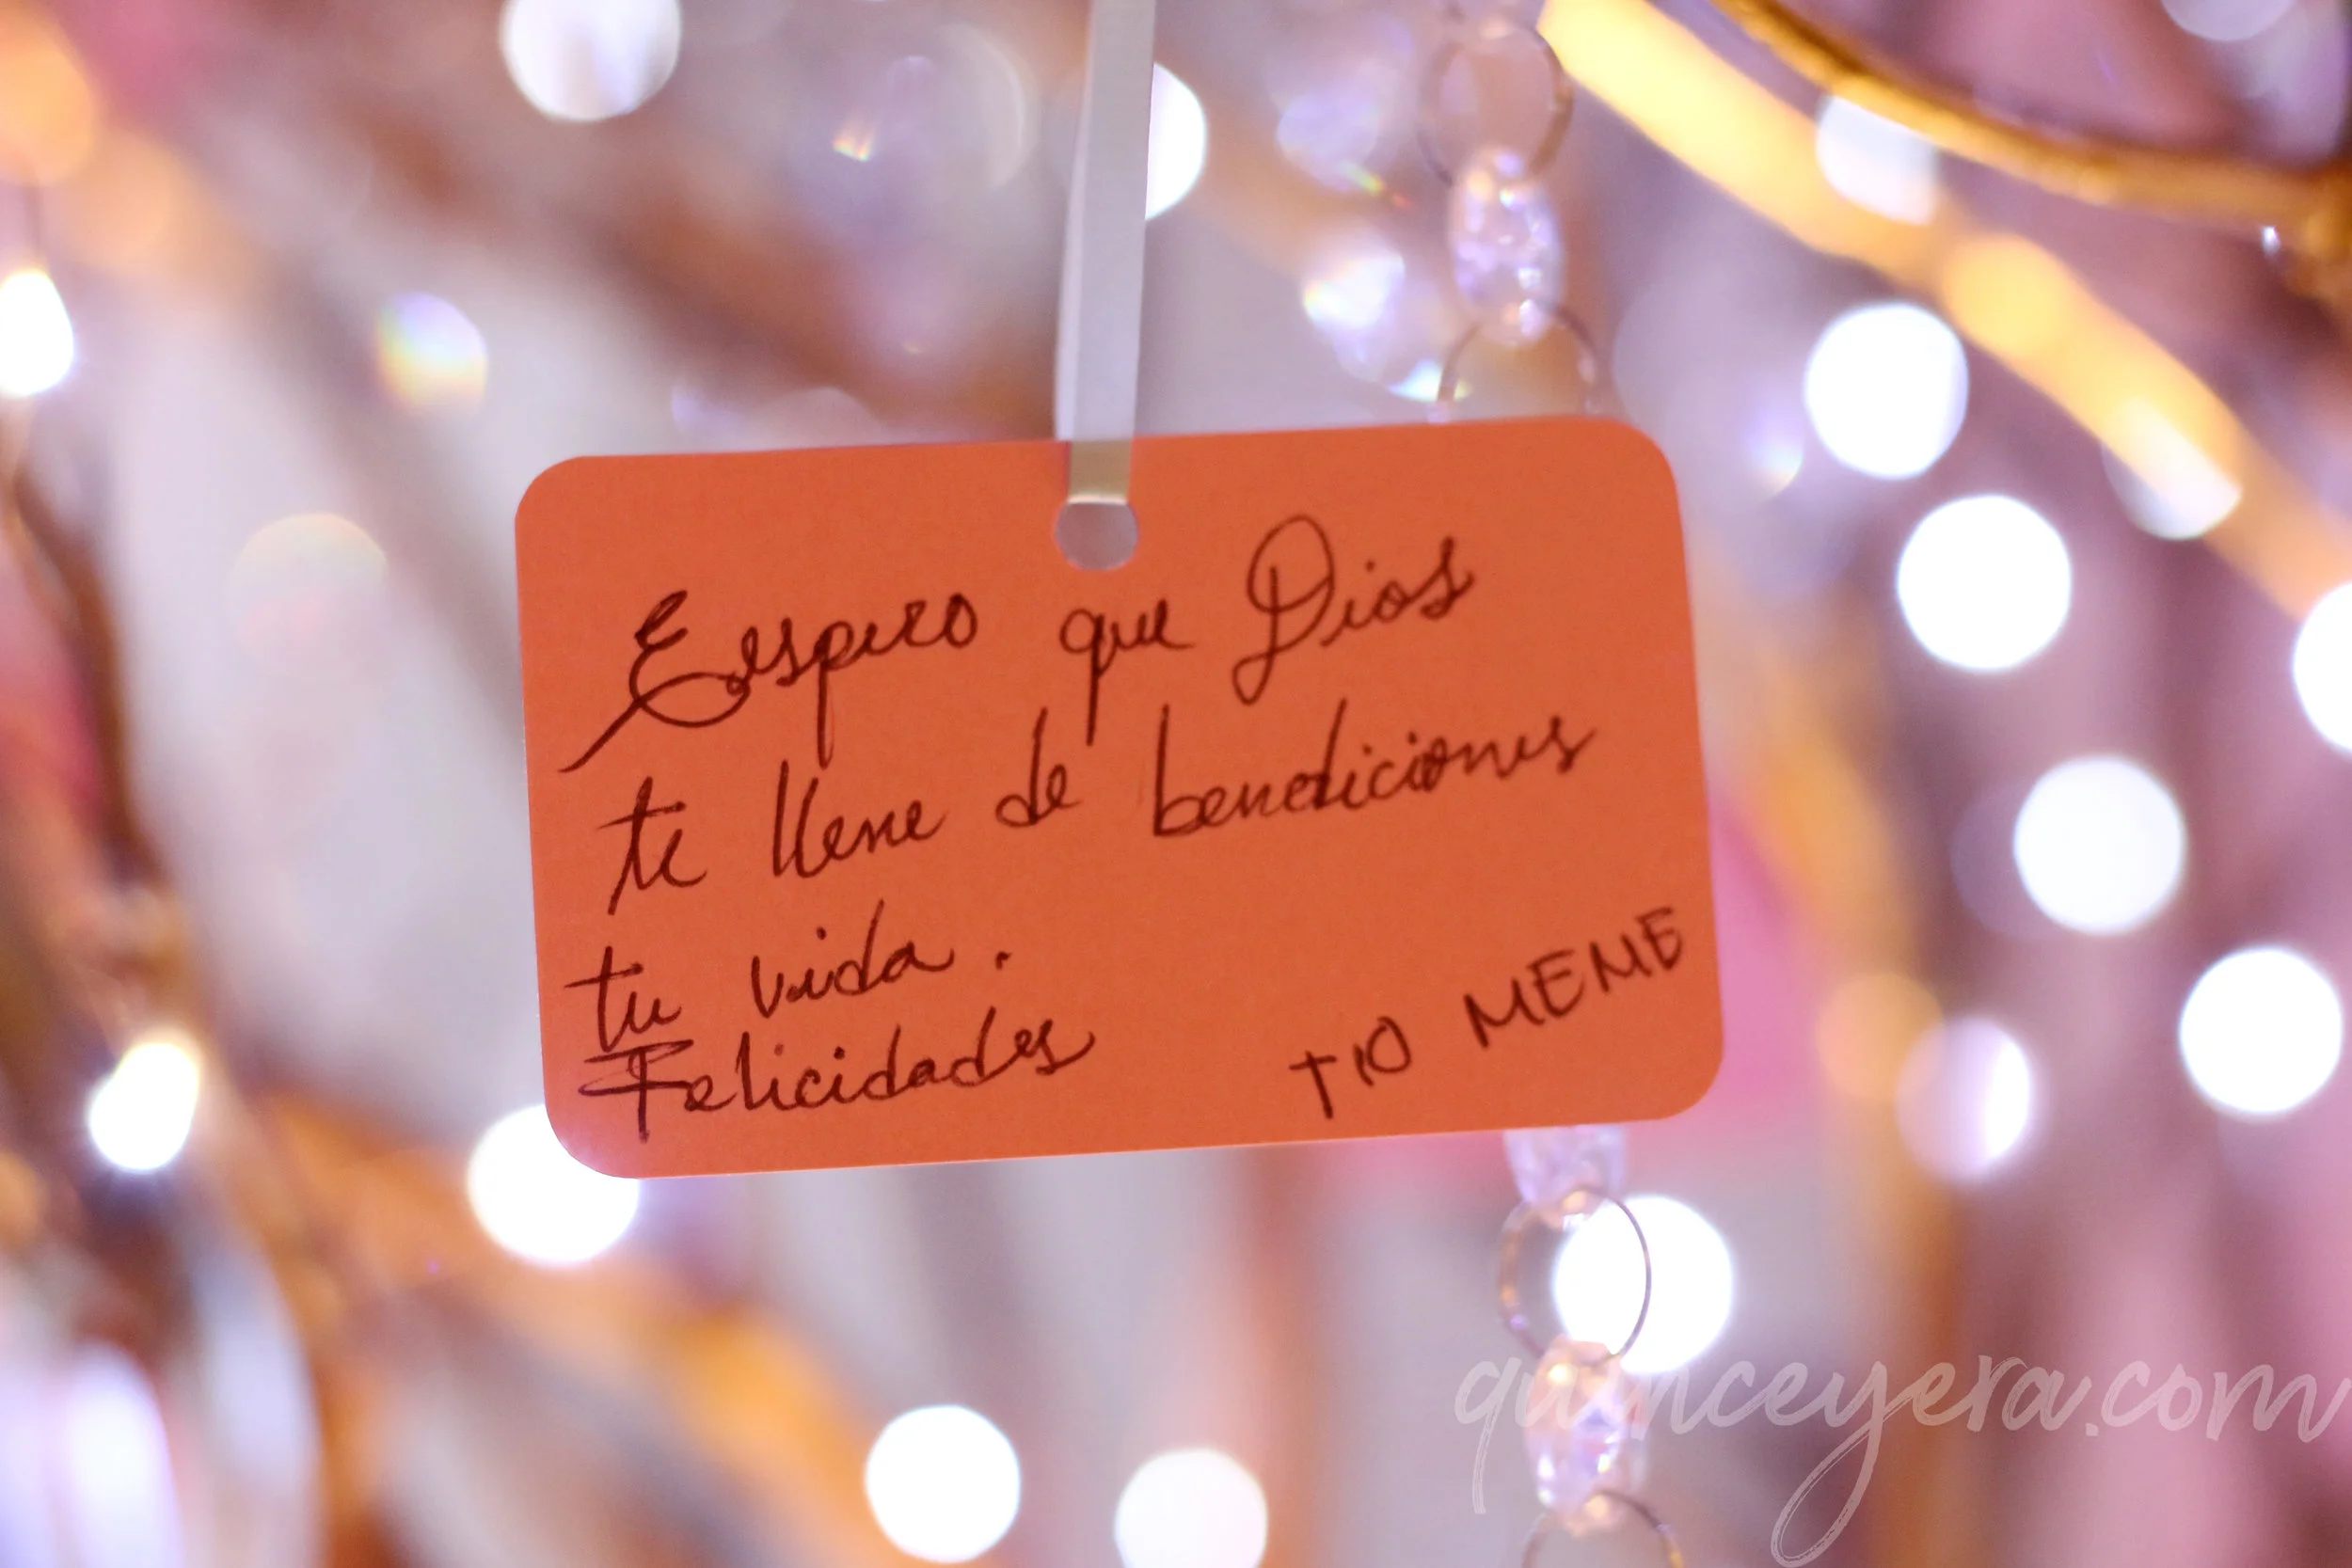 Eespero que Dios
te llene de bendiciones
tu vida.
Felicidades
TIO MEME
quinceyera.com